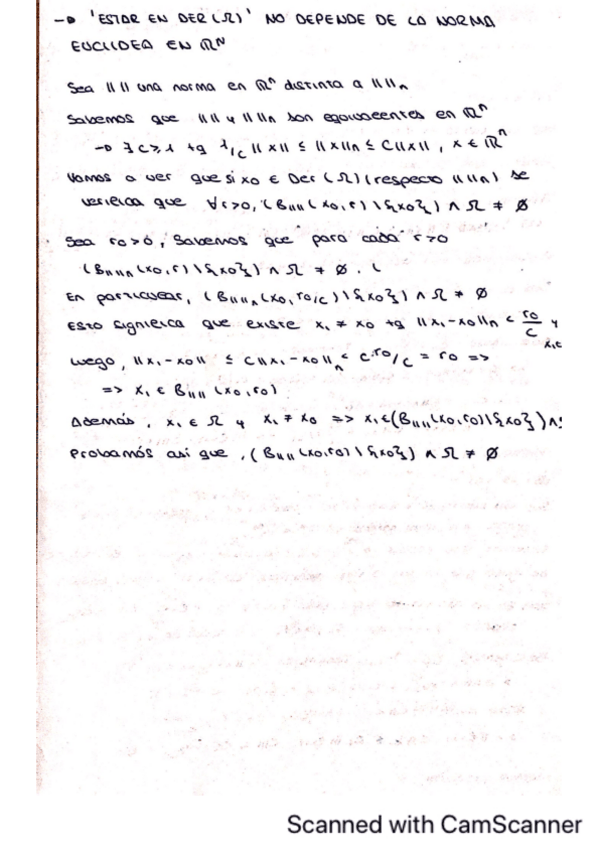 → 'ESTAR EN DER(Ω)' NO DEPENDE DE LA NORMA
EUCLIDEA EN ℝⁿ
Sea || || una norma en ℝⁿ distinta a || ||ₙ
Sabemos que || || y || ||ₙ son equivalentes en ℝⁿ
→ ∃ c≥1 tq 1/c ||x|| ≤ ||x||ₙ ≤ C||x||, x ∈ ℝⁿ
Vamos a ver que si x₀ ∈ Der(Ω) (respecto || ||ₙ) se
verifica que ∀r>0, (B_{|| ||}(x₀,r)\{x₀}) ∩ Ω ≠ ∅
Sea r₀>0, Sabemos que para cada r>0
(B_{|| ||ₙ}(x₀,r)\{x₀}) ∩ Ω ≠ ∅. (
En particular, (B_{|| ||ₙ}(x₀,r₀/c)\{x₀}) ∩ Ω ≠ ∅
Esto significa que existe x₁ ≠ x₀ tq ||x₁-x₀||ₙ < r₀/c y
x₁∈
Luego, ||x₁-x₀|| ≤ C||x₁-x₀||ₙ < c·r₀/c = r₀ =>
=> x₁ ∈ B_{|| ||}(x₀,r₀)
Además, x₁ ∈ Ω y x₁ ≠ x₀ => x₁∈(B_{|| ||}(x₀,r₀)\{x₀})∩
Probamós asi que, (B_{|| ||}(x₀,r₀)\{x₀}) ∩ Ω ≠ ∅
Scanned with CamScanner